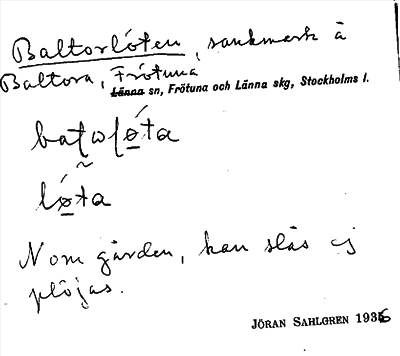 Baltorlöten, sankmark å
Baltora, Frötuna
Länna sn, Frötuna och Länna skg, Stockholms l.
baƫωɭǿta
~ lǿta
N om gården, kan slås ej
plöjas.
JÖRAN SAHLGREN 1936